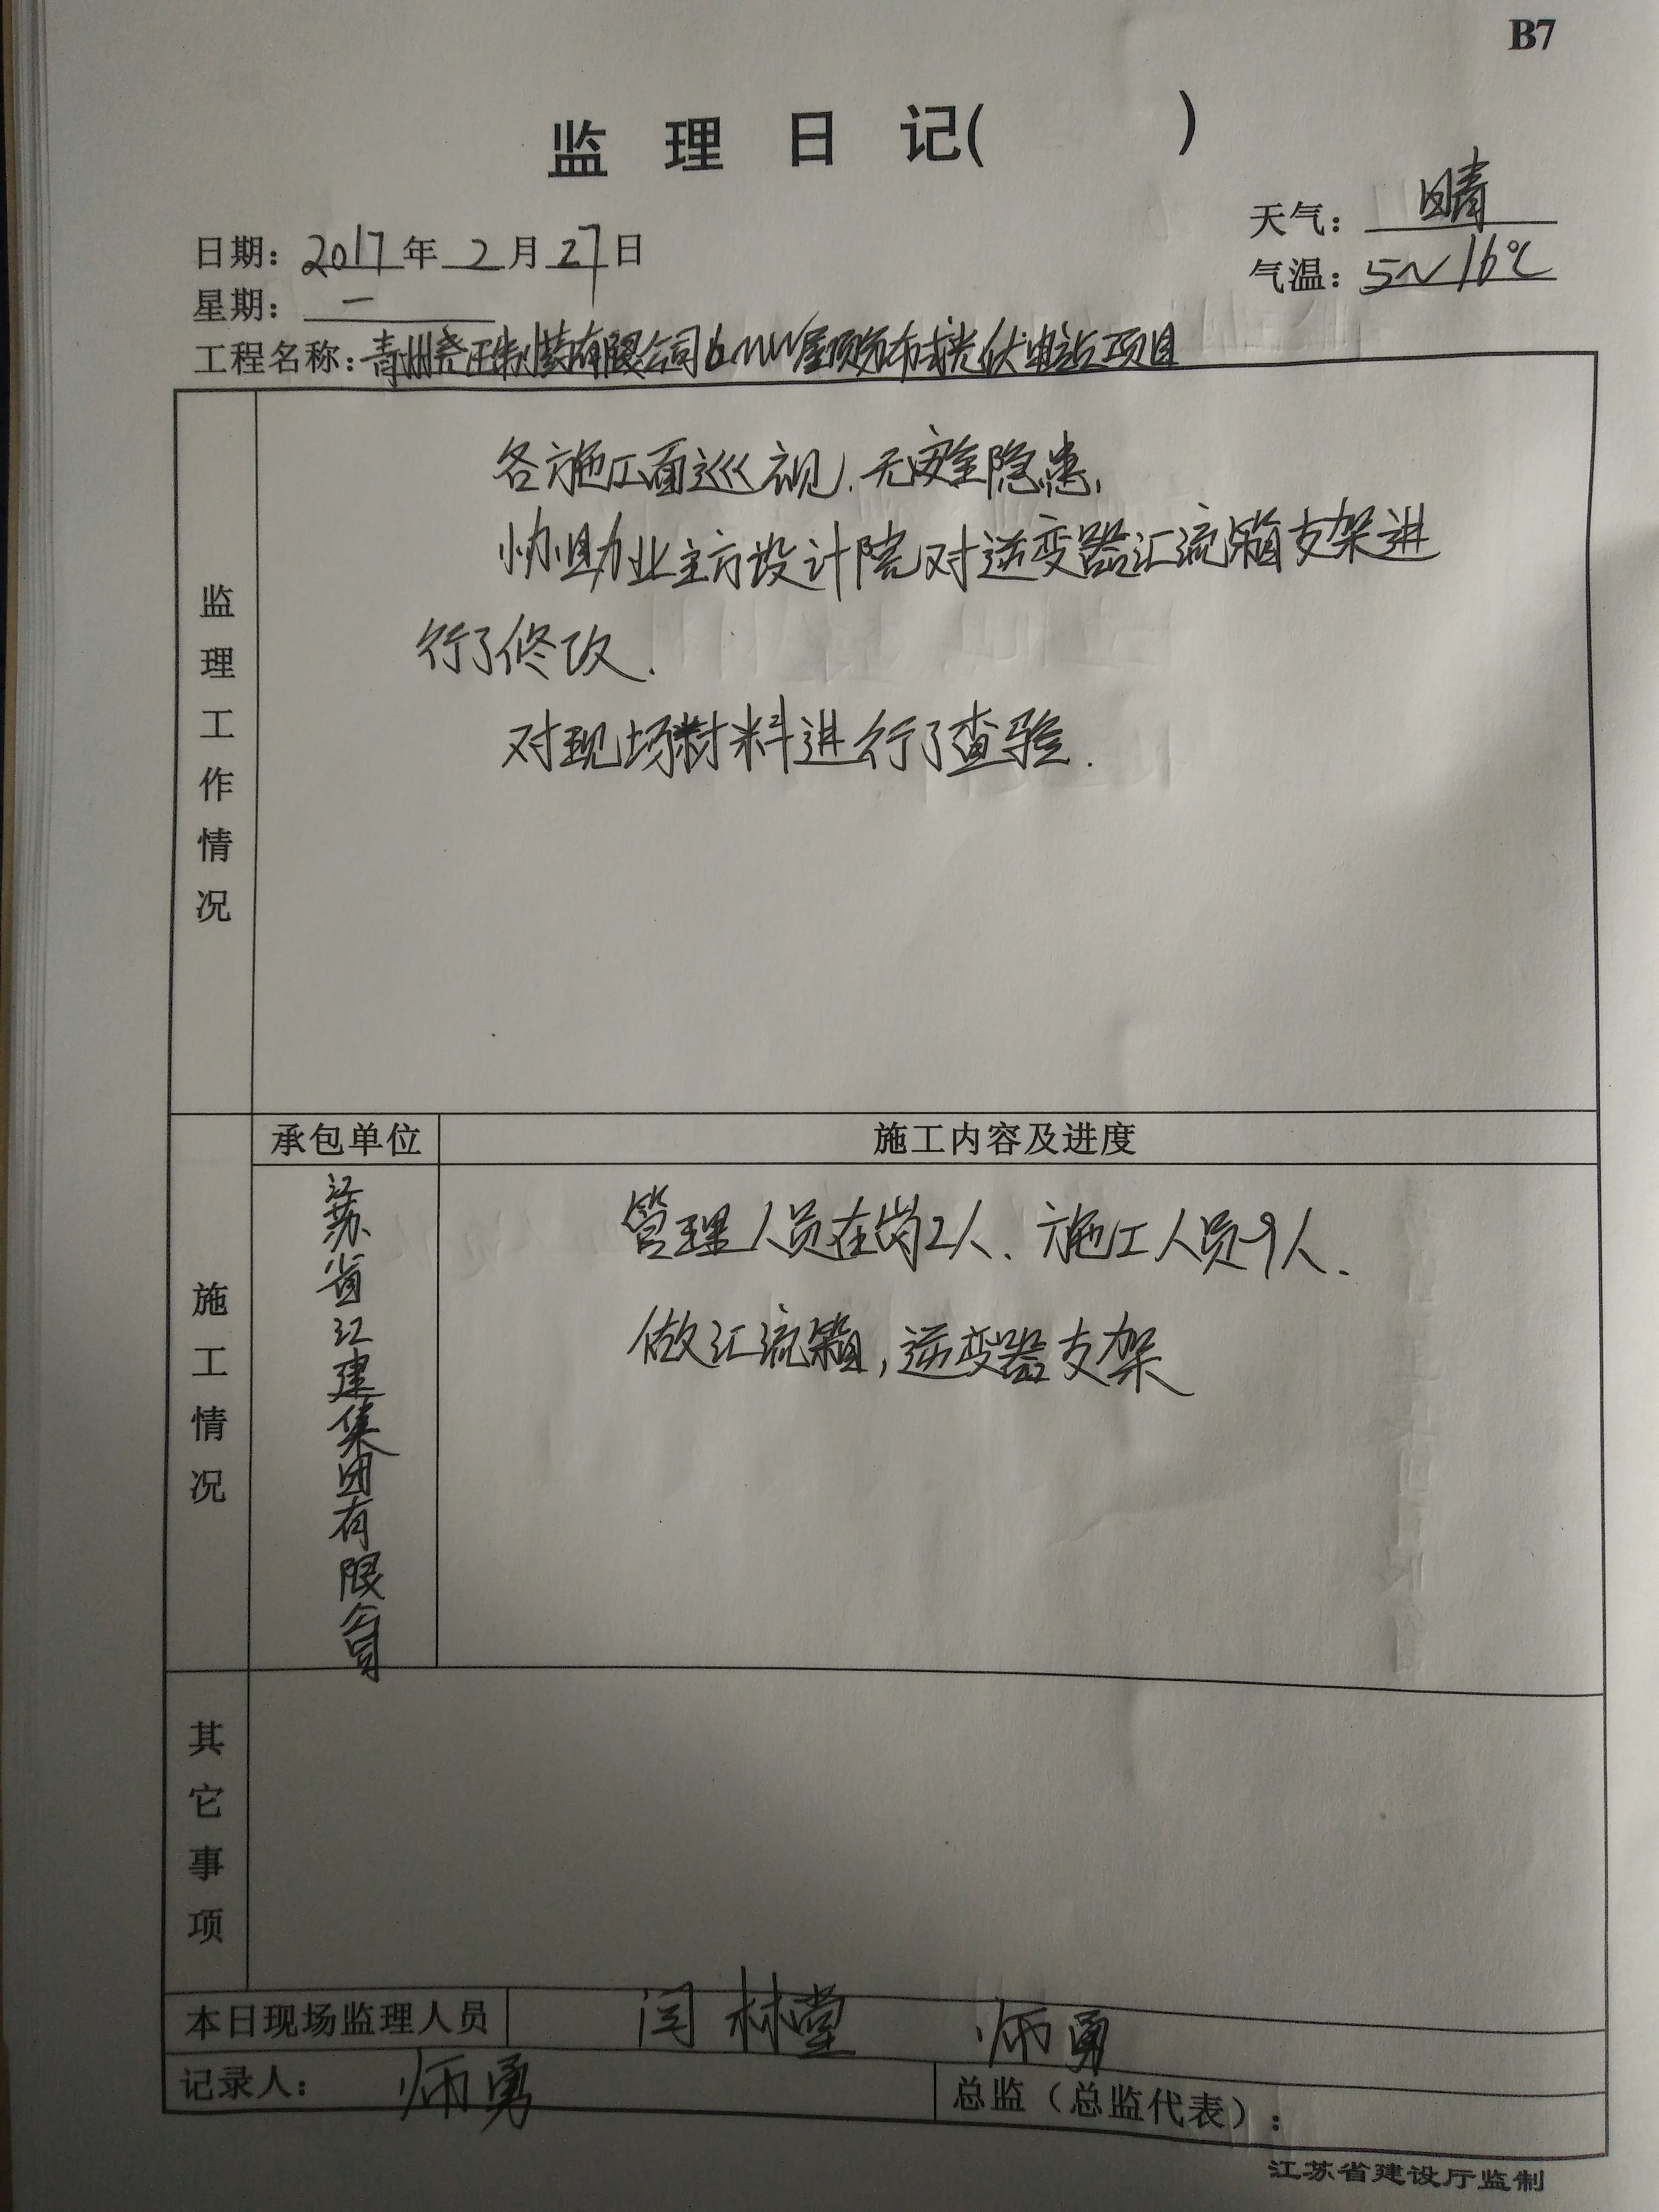 B7
监理日记( )
日期：2017年2月27日
天气：晴
星期：一
气温：5~16℃
工程名称：青州尧王制药有限公司6MW屋顶分布式光伏电站项目
监理工作情况
各施工面巡视.无安全隐患.
协助业主方设计院对逆变器汇流箱支架进
行了修改.
对现场材料进行了查验.
施工情况
承包单位
施工内容及进度
江苏省江建集团有限公司
管理人员在岗2人、施工人员9人.
做汇流箱,逆变器支架
其它事项
本日现场监理人员 闫林堂 师勇
记录人：师勇
总监（总监代表）：
江苏省建设厅监制